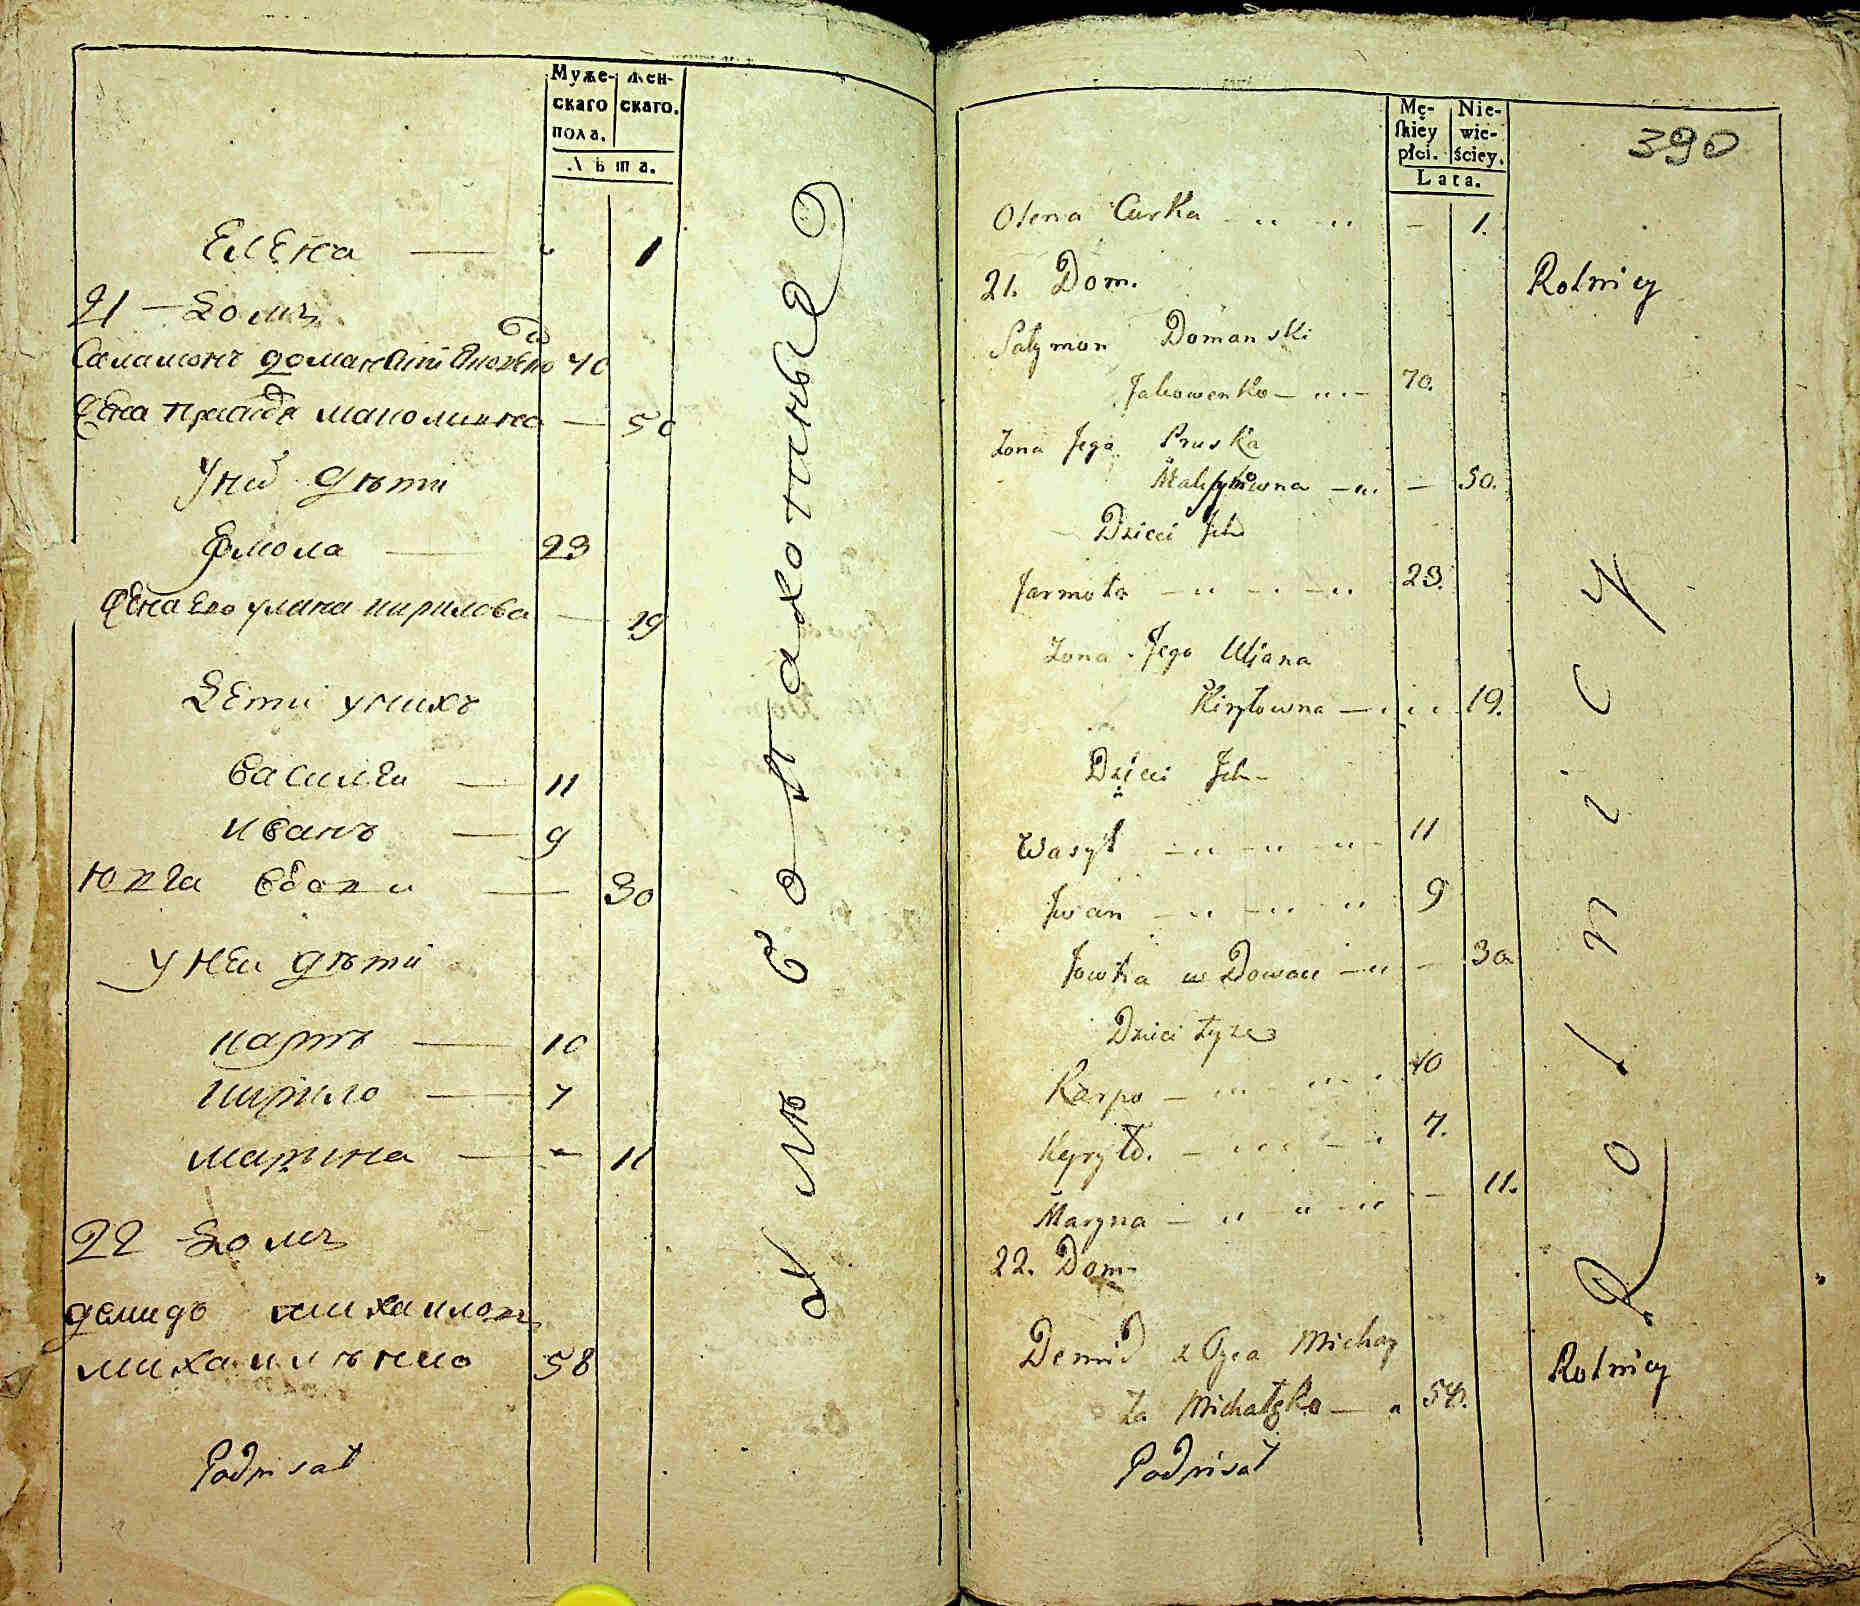 Муже-
скаго
пола.
жен-
скаго.
Лѣта.
Елена — 1
21 — Домъ
Саламонъ доманскій 70
Жена 50
У них дѣти
Ермола — 23
Жена Его улина кирилова — 19
Дети у нихъ
василги — 11
иванъ — 9
Юхга вдова — 30
у неи дѣти
карпъ — 10
кирило — 7
марина — - 11
22 Домъ
демидъ михаиловъ
михаиленко 58
Podpisał
Мѣ во пахотные
Mę-
skiey
płci.
Nie-
wie-
ściey.
Lata.
390
Olena Curka — 1.
21. Dom. Rolnicy
Salymon Domanski
Jakowenko — 70.
Zona Jego Pruska
— 50.
Dzieci Ich
Jarmoła — 23.
Zona Jego Uljana
Kiryłowna — 19.
Dzieci Ich
Wasyl — 11
Iwan — 9
Jowka w Dowau — 30
Dzieci tyze
Karpo — 10
Kyryło. — 7.
Maryna — 11.
22. Dom
Demid z Oyca Michay
ła Michałko — 58. Rolnicy
Podpisał
Rolnicy